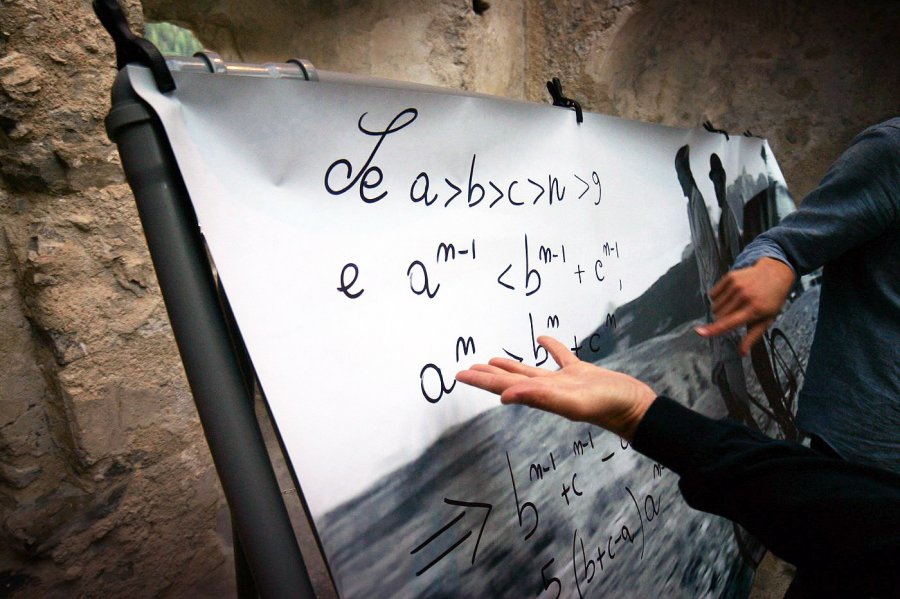 Se a>b>c>n>9
e a^{n-1} < b^{n-1} + c^{n-1},
a^n > b^n + c^n
⇒ b^{n-1} + c^{n-1} -
5(b+c-a) a^{n-